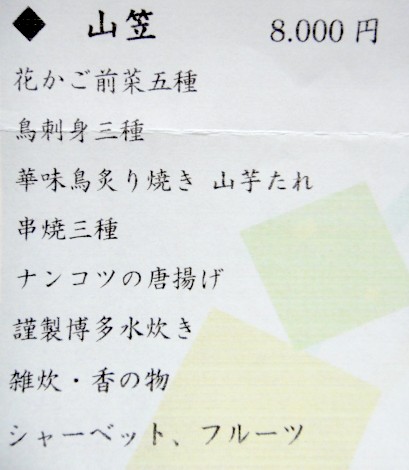 ◆ 山笠 8.000 円
花かご前菜五種
鳥刺身三種
華味鳥炙り焼き 山芋たれ
串焼三種
ナンコツの唐揚げ
謹製博多水炊き
雑炊・香の物
シャーベット、フルーツ